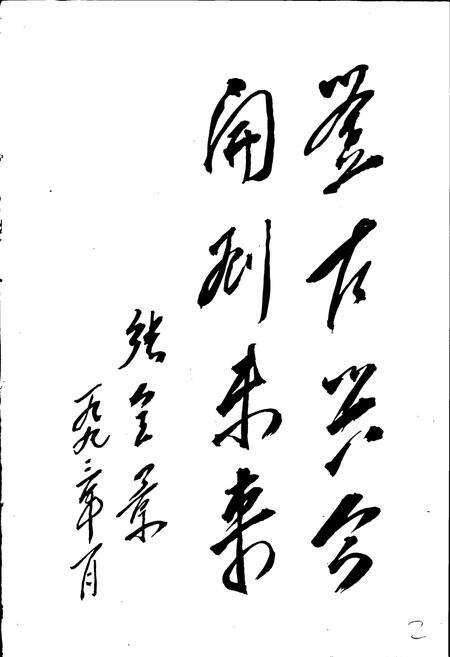 鉴古兴今
開创未来
张全景
一九九三年一月
2